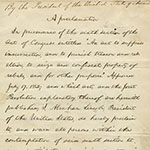 By the President of the United States of America
A proclamation.
In pursuance of the sixth section of the
Act of Congress entitled "An act to suppress
insurrection, and to punish treason and
to seize and confiscate property of
rebels, and for other purposes" Approved
July 17. 1862, and which act, and the Joint
Resolution explanatory thereof, are herewith
published, I, Abraham Lincoln, President
of the United States, do hereby proclaim
to, and warn all persons within the
contemplation of said sixth section to